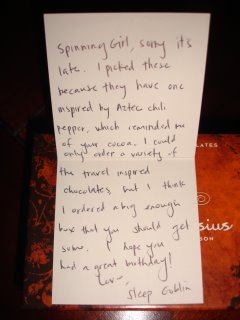 Spinning Girl, sorry its
late. I picked these
because they have one
inspired by Aztec chili
pepper, which reminded me
of your cocoa. I could
only order a variety of
the travel inspired
chocolates, but I think
I ordered a big enough
box that you should get
some. I hope you
had a great birthday!
Love
Sleep Goblin
LATES
sius
SON